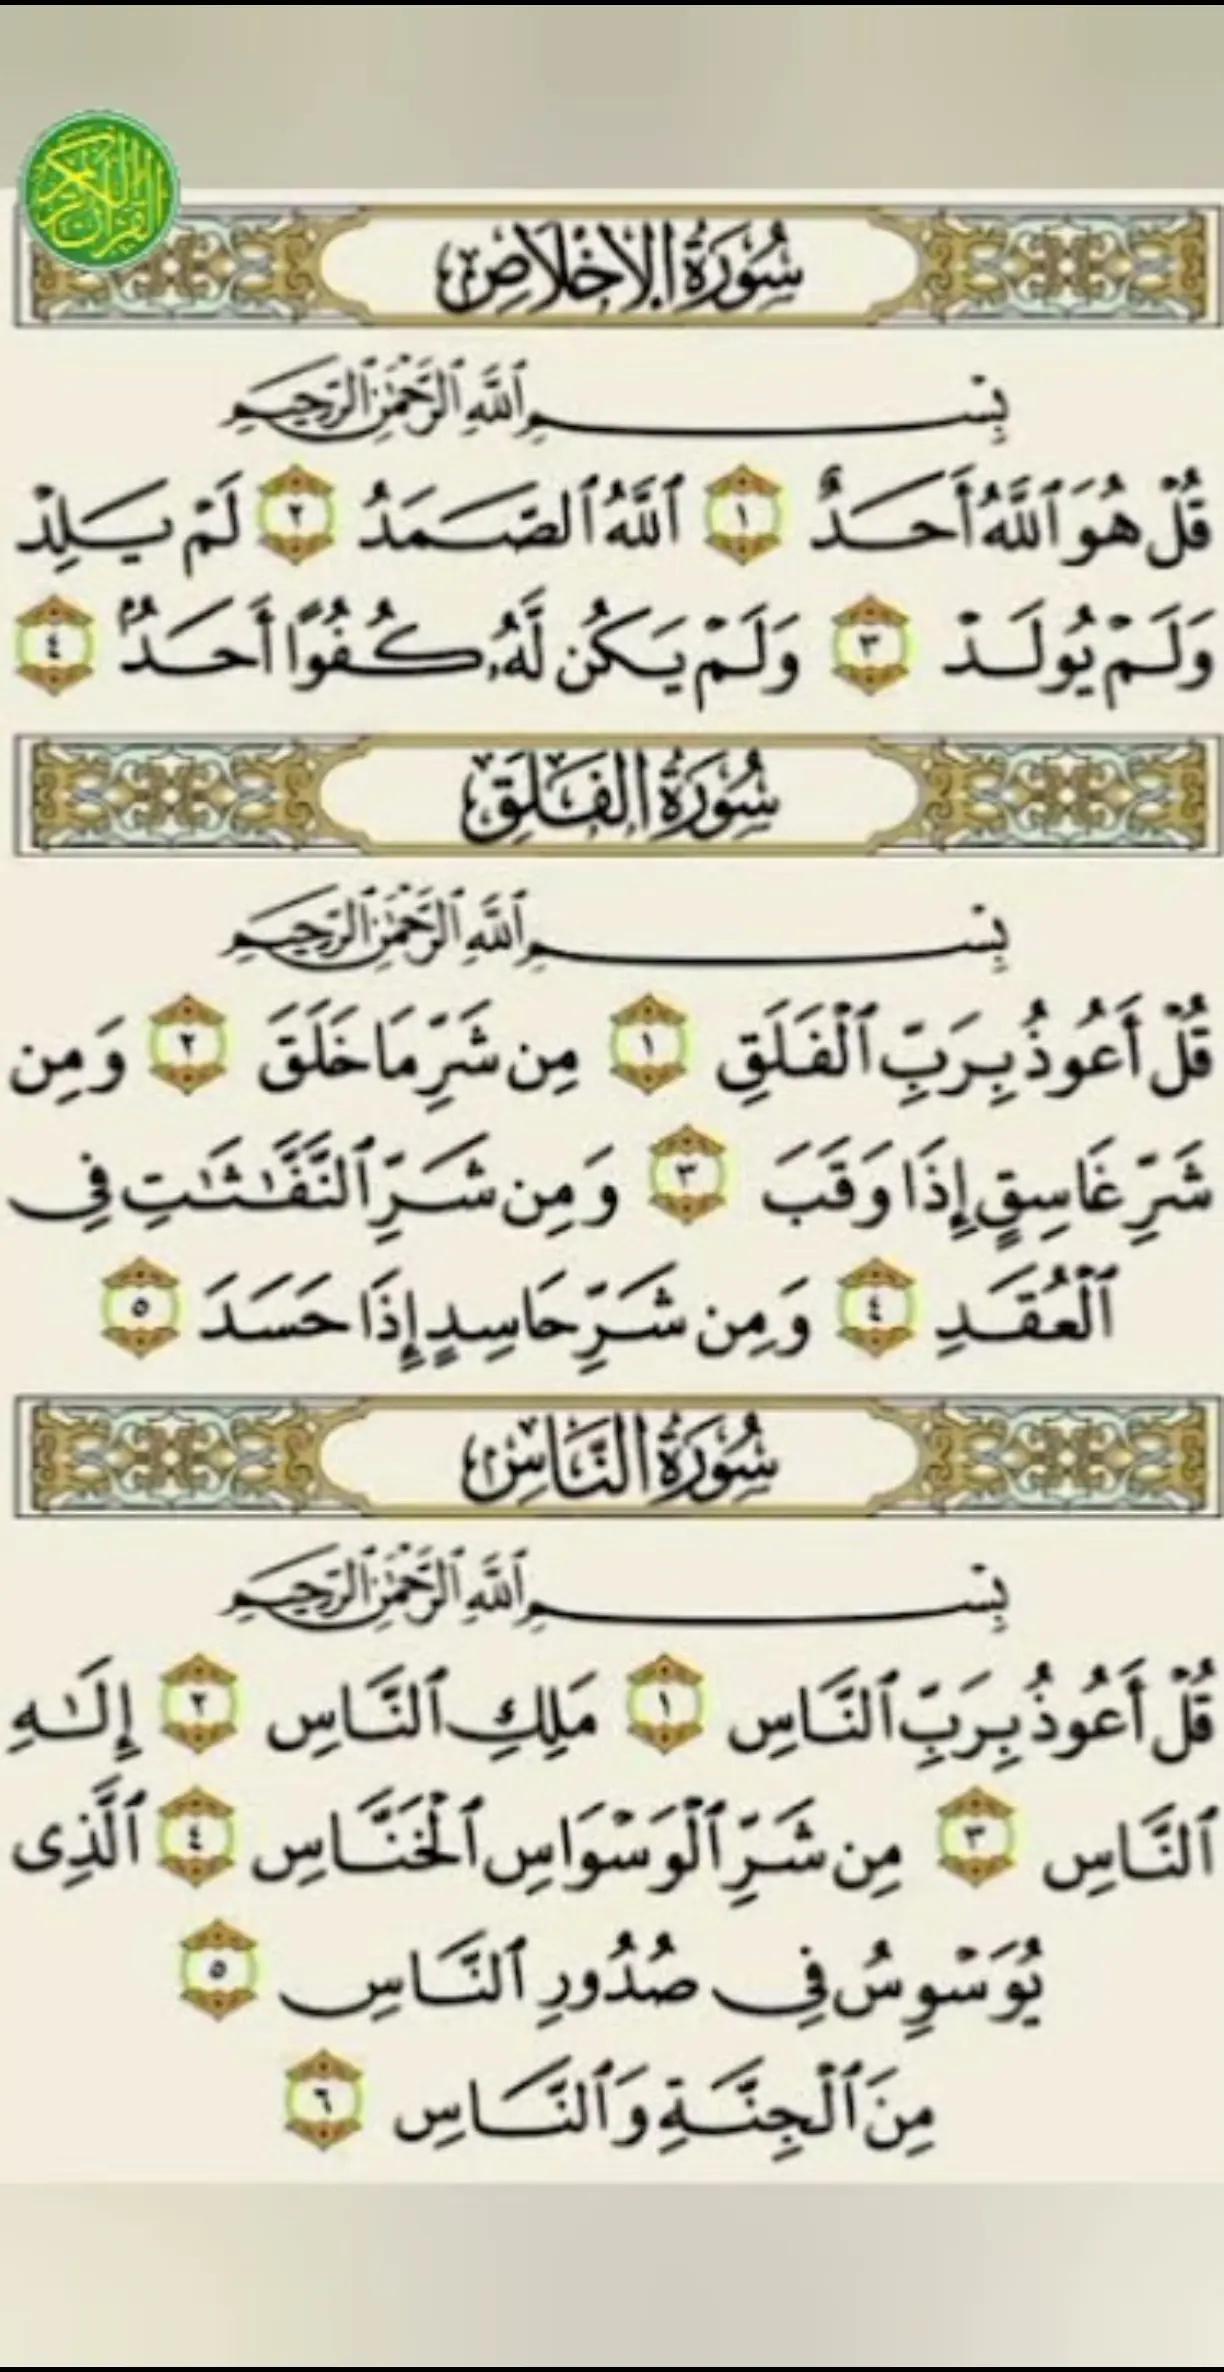 القرآن الكريم
سُورَةُ الإِخْلَاصِ
بِسْمِ ٱللَّهِ ٱلرَّحْمَٰنِ ٱلرَّحِيمِ
قُلْ هُوَ ٱللَّهُ أَحَدٌ ١ ٱللَّهُ ٱلصَّمَدُ ٢ لَمْ يَلِدْ
وَلَمْ يُولَدْ ٣ وَلَمْ يَكُن لَّهُۥ كُفُوًا أَحَدٌۢ ٤
سُورَةُ الفَلَقِ
بِسْمِ ٱللَّهِ ٱلرَّحْمَٰنِ ٱلرَّحِيمِ
قُلْ أَعُوذُ بِرَبِّ ٱلْفَلَقِ ١ مِن شَرِّ مَا خَلَقَ ٢ وَمِن
شَرِّ غَاسِقٍ إِذَا وَقَبَ ٣ وَمِن شَرِّ ٱلنَّفَّٰثَٰتِ فِى
ٱلْعُقَدِ ٤ وَمِن شَرِّ حَاسِدٍ إِذَا حَسَدَ ٥
سُورَةُ النَّاسِ
بِسْمِ ٱللَّهِ ٱلرَّحْمَٰنِ ٱلرَّحِيمِ
قُلْ أَعُوذُ بِرَبِّ ٱلنَّاسِ ١ مَلِكِ ٱلنَّاسِ ٢ إِلَٰهِ
ٱلنَّاسِ ٣ مِن شَرِّ ٱلْوَسْوَاسِ ٱلْخَنَّاسِ ٤ ٱلَّذِى
يُوَسْوِسُ فِى صُدُورِ ٱلنَّاسِ ٥
مِنَ ٱلْجِنَّةِ وَٱلنَّاسِ ٦